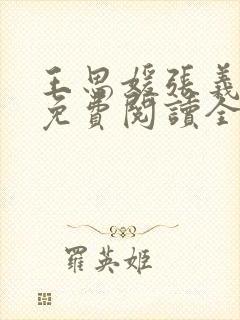 王思媛張義
免費閱讀全
羅英姬